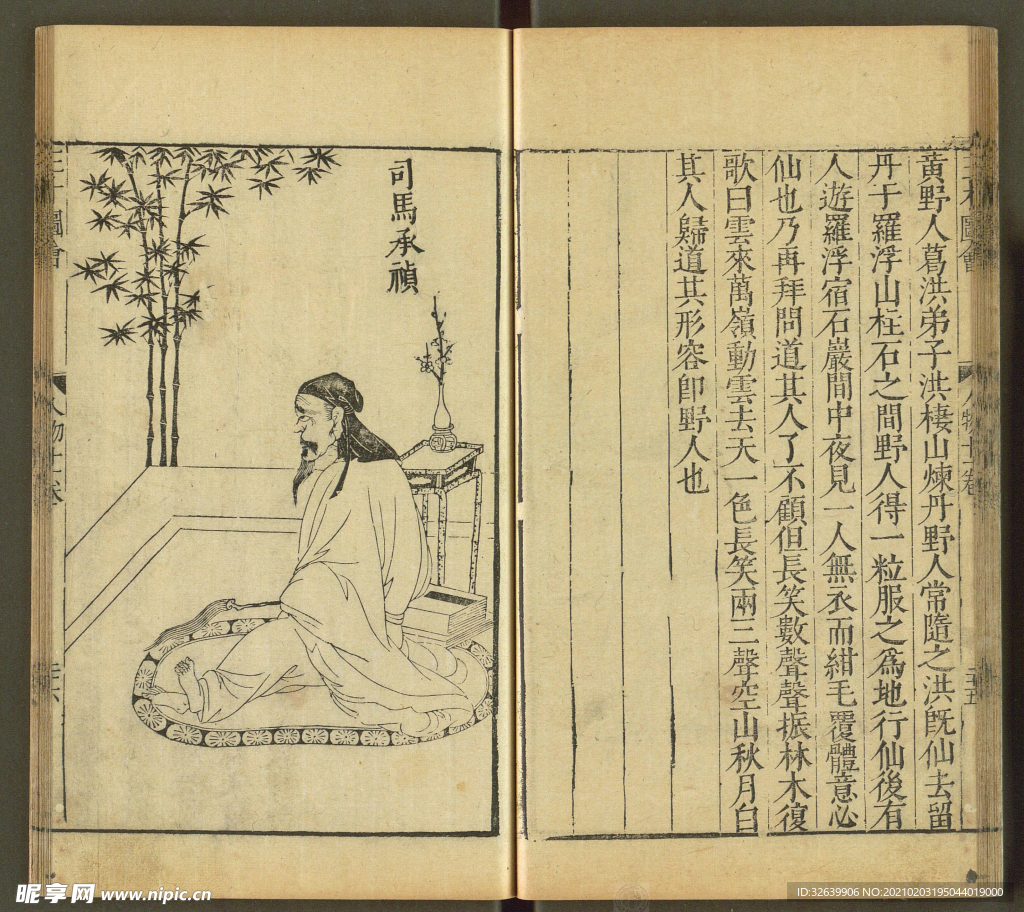 三才圖會
人物十卷
三十五
黃野人葛洪弟子洪棲山煉丹野人常隨之洪旣仙去留
丹于羅浮山柱石之間野人得一粒服之爲地行仙後有
人遊羅浮宿石巖間中夜見一人無衣而紺毛覆體意必
仙也乃再拜問道其人了不顧但長笑數聲聲振林木復
歌曰雲來萬嶺動雲去天一色長笑兩三聲空山秋月白
其人歸道其形容卽野人也
司馬承禎
圖會
人物十
昵享网 www.nipic.cn
ID:32639906 NO:20210203195044019000